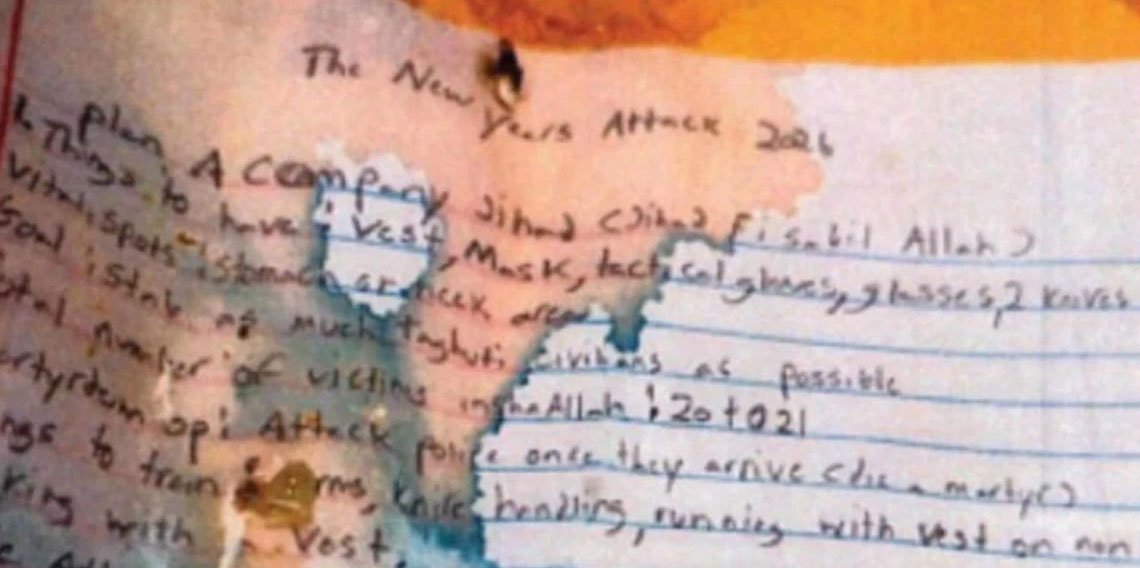 The New Years Attack 2026
plan A Company Jihad (Jihad fi sabil Allah)
Things to have : Vest, Mask, tactical gloves, glasses, 2 knives
Vital spots : stomach or neck area
Goal : stab as much taghuti civilians as possible
total number of victims inshaAllah : 20 to 21
martyrdom op : Attack police once they arrive (die a martyr)
to train : arms, knife handling, running with vest on
with Vest,